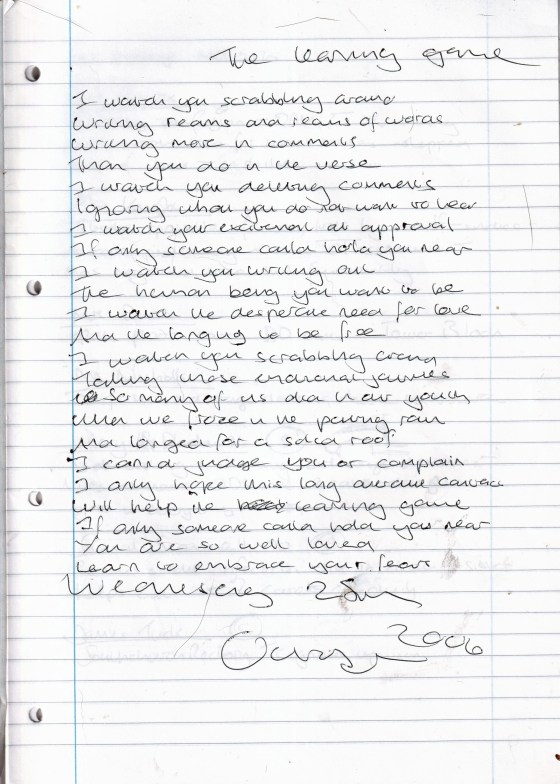 The learning game
I watch you scrabbling around
Writing reams and reams of words
Writing more in comments
Than you do in the verse
I watch you deleting comments
Ignoring what you do not want to hear
I watch your excitement at approval
If only someone could hold you near
I watch you writing out
The human being you want to be
I watch the desperate need for love
And the longing to be free
I watch you scrabbling around
Taking those emotional journies
so many of us did in our youth
When we froze in the pouring rain
And longed for a solid roof
I cannot judge you or complain
I only hope this long awaited
Will help the learning game
If only someone could hold you near
You are so well loved
Learn to embrace your fears
Wednesday 25th
2006